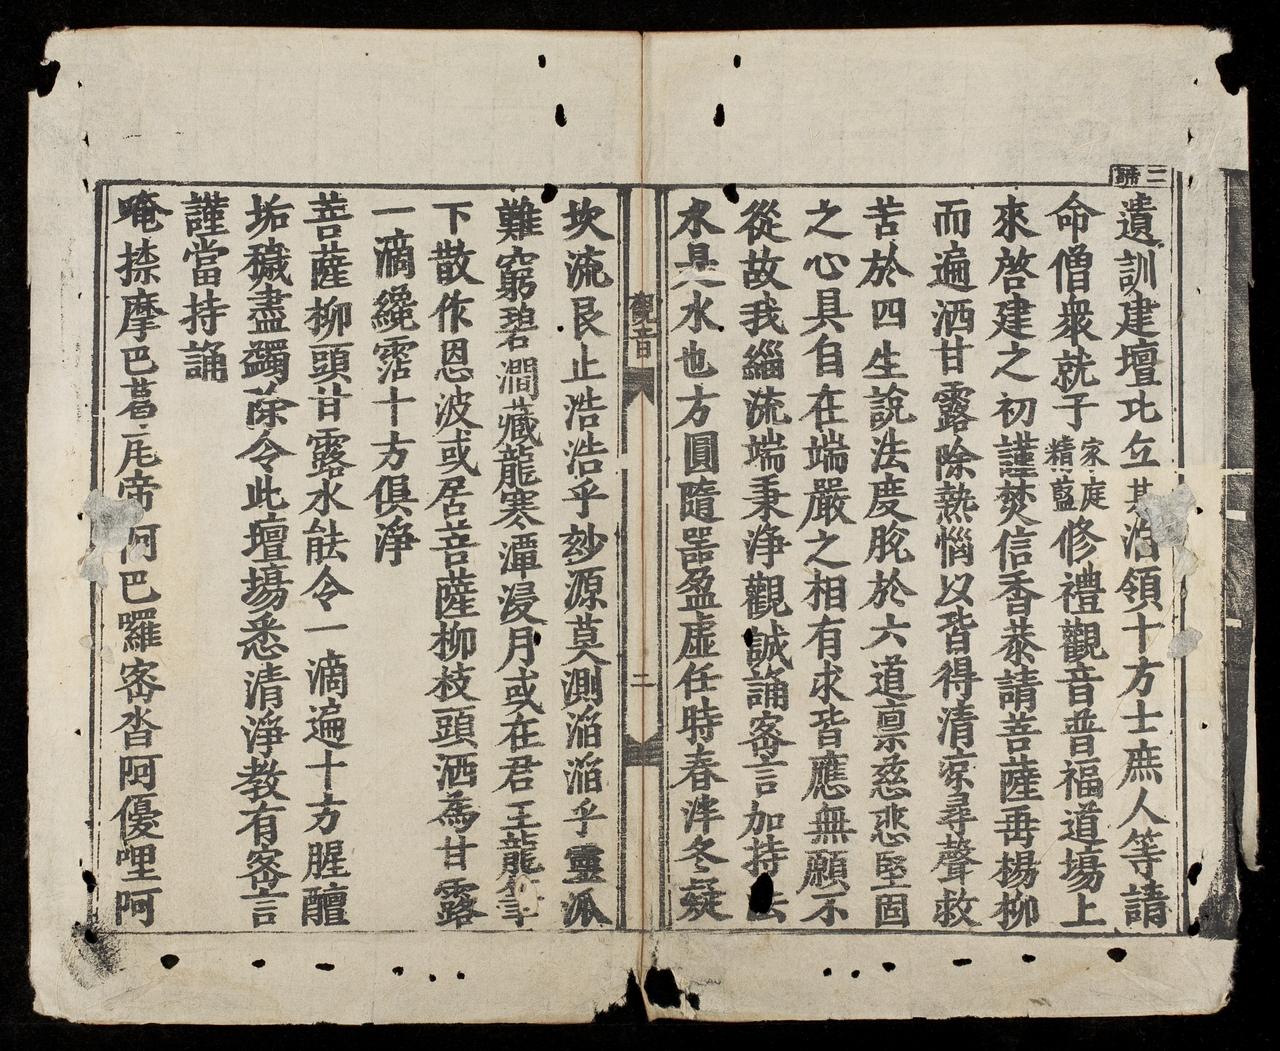 三號
遺訓建壇比丘某洎領十方士庶人等請
命僧衆就于家庭精藍修禮觀音普福道場上
來啓建之初謹焚信香恭請菩薩再楊柳
而遍洒甘露除熱惱以皆得清凉尋聲救
苦於四生說法度脫於六道禀慈悲堅固
之心具自在端嚴之相有求皆應無願不
從故我緇流端秉淨觀誠誦密言加持法
水是水也方圓隨器盈虛任時春泮冬凝
觀音
二
坎流艮止浩浩乎妙源莫測滔滔乎靈派
難窮碧澗藏龍寒潭浸月或在君王龍筆
下散作恩波或居菩薩柳枝頭洒為甘露
一滴纔霑十方俱淨
菩薩柳頭甘露水能令一滴遍十方腥羶
垢穢盡蠲除令此壇場悉清淨教有密言
謹當持誦
唵捺摩巴葛瓦帝阿巴囉密沓阿優哩阿